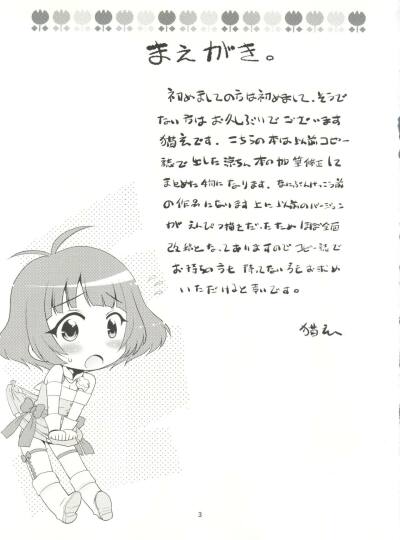 まえがき。
初めましての方は初めまして、そうで
ない方はお久しぶりでございます
猫玄です。こちらの本は以前コピー
誌で出した涼ちん本の加筆修正して
まとめた物になります。なにぶんけっこう前
の作品になります上に以前のバージョン
がえんぴつ描きだったためほぼ全面
改稿となっておりますのでコピー誌で
お持ちの方も持ってない方もお求め
いただけると幸いです。
猫玄
3